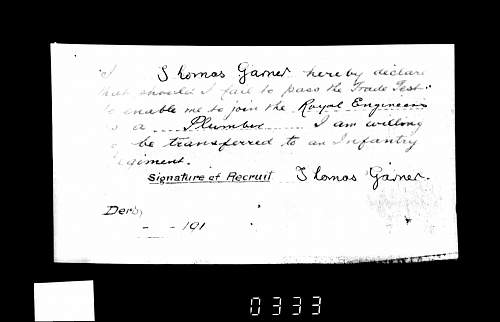 I Thomas Garner hereby declare
that should I fail to pass the Trade Test
to enable me to join the Royal Engineers
as a Plumber I am willing
to be transferred to an Infantry
Regiment.
Signature of Recruit Thomas Garner.
Derby
- - 191
0333